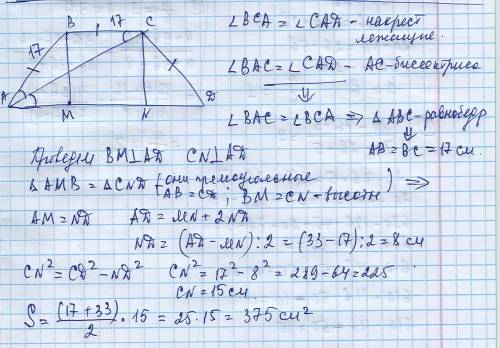 B 17 C
17
A M N D
∠BCA = ∠CAD - накрест
лежащие.
∠BAC = ∠CAD - AC-биссектриса
⇓
∠BAC = ∠BCA ⇒ △ABC-равнобедр
⇓
AB = BC = 17 см.
Проведем BM⊥AD CN⊥AD
△AMB = △CND (они прямоугольные
AB = CD ; BM = CN - высоты ) ⇒
AM = ND AD = MN + 2ND
ND = (AD - MN) : 2 = (33 - 17) : 2 = 8 см
CN² = CD² - ND² CN² = 17² - 8² = 289 - 64 = 225
CN = 15 см.
S = (17 + 33)/2 · 15 = 25 · 15 = 375 см²